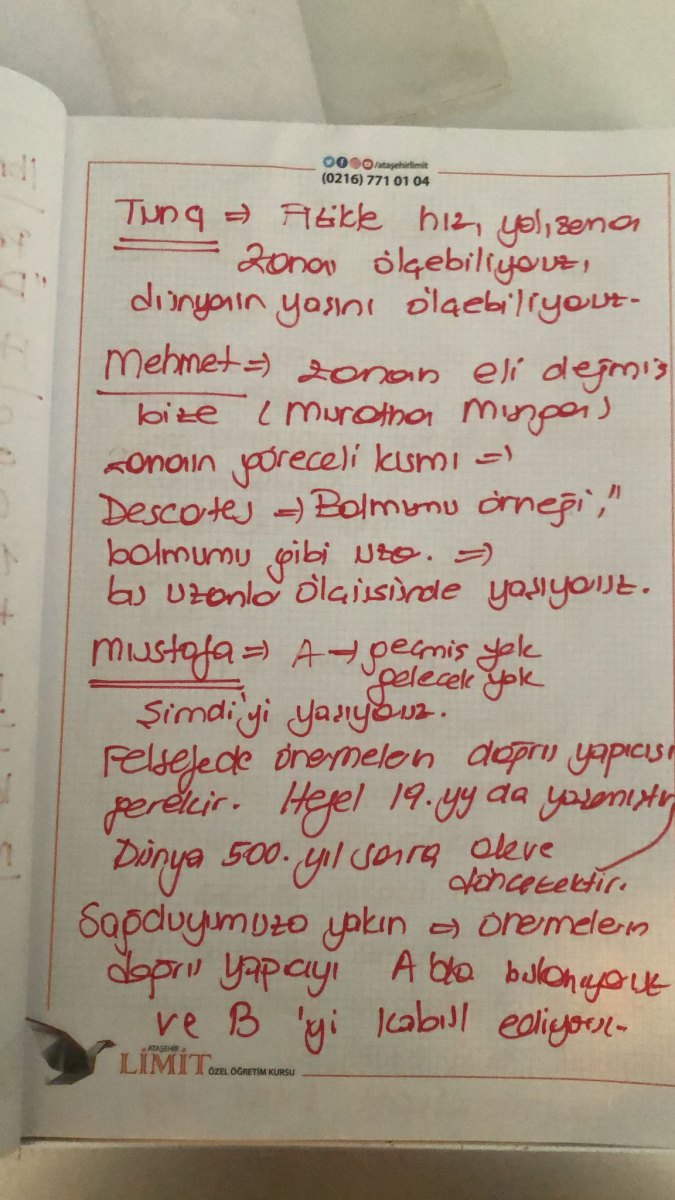 /ataşehirlimit
(0216) 771 01 04
Tunç => Fizikle hız, yol,
zamanı ölçebiliyoruz,
dünyanın yaşını ölçebiliyoruz.
Mehmet => zamanın eli değmiş
bize (Murathan Mungan)
zamanın göreceli kısmı =>
Descartes => Balmumu örneği,"
balmumu gibi uza. =>
bu uzamla ölçüsünde yaşıyoruz.
Mustafa => A → geçmiş yok
gelecek yok
Şimdi'yi yaşıyoruz.
Felsefede önermelerin doğru yapıcısı
gerekir. Hegel 19.yy da yaşamıştır
Dünya 500. yıl sonra aleve
dönecektir.
Sağduyumuza yakın => önermelerin
doğru yapıcıyı A da bulamıyoruz
ve B 'yi kabul ediyoruz.
ATAŞEHİR
LİMİT ÖZEL ÖĞRETİM KURSU